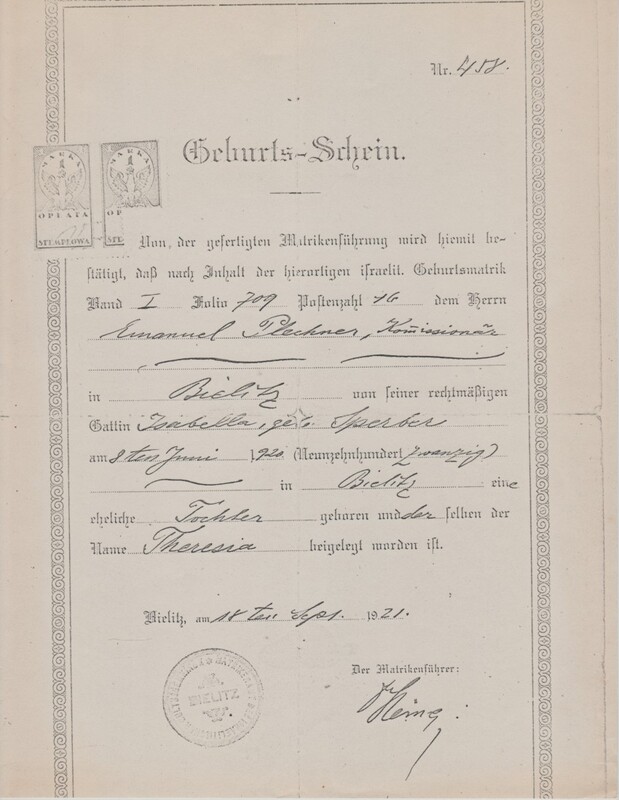 Nr. 458.
Geburts-Schein.
MARKA
1
OPŁATA
STEMPLOWA
MARKA
1
OP
STE
Von der gefertigten Matrikenführung wird hiemit be-
stätigt, daß nach Inhalt der hierortigen israelit. Geburtsmatrik
Band I Folio 709 Postenzahl 16 dem Herrn
Emanuel Plechner, Kom̄issionär
in Bielitz von seiner rechtmäßigen
Gattin Isabella, geb. Sperber
am 8ten Juni 1920 (Neunzehnhundert zwanzig)
in Bielitz eine
eheliche Tochter geboren und der selben der
Name Theresia beigelegt worden ist.
Bielitz, am 18ten Sept. 1921.
Der Matrikenführer:
BIELITZ